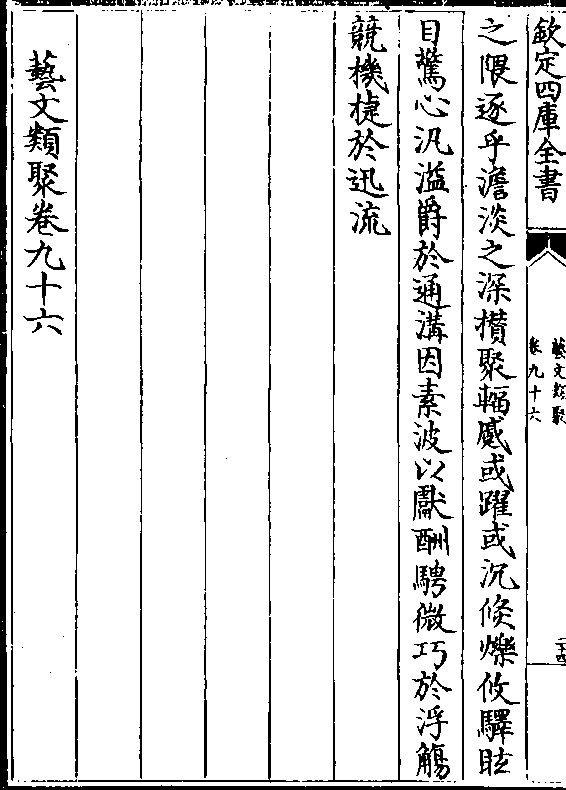 欽定四庫全書
藝文類聚
卷九十六
二十四
之隈逐乎澹淡之深攢聚輻蹙或躍或沉倏爍攸驛眩
目驚心汎溢爵於通溝因素波以獻酬騁微巧於浮觴
競機捷於迅流
藝文類聚卷九十六